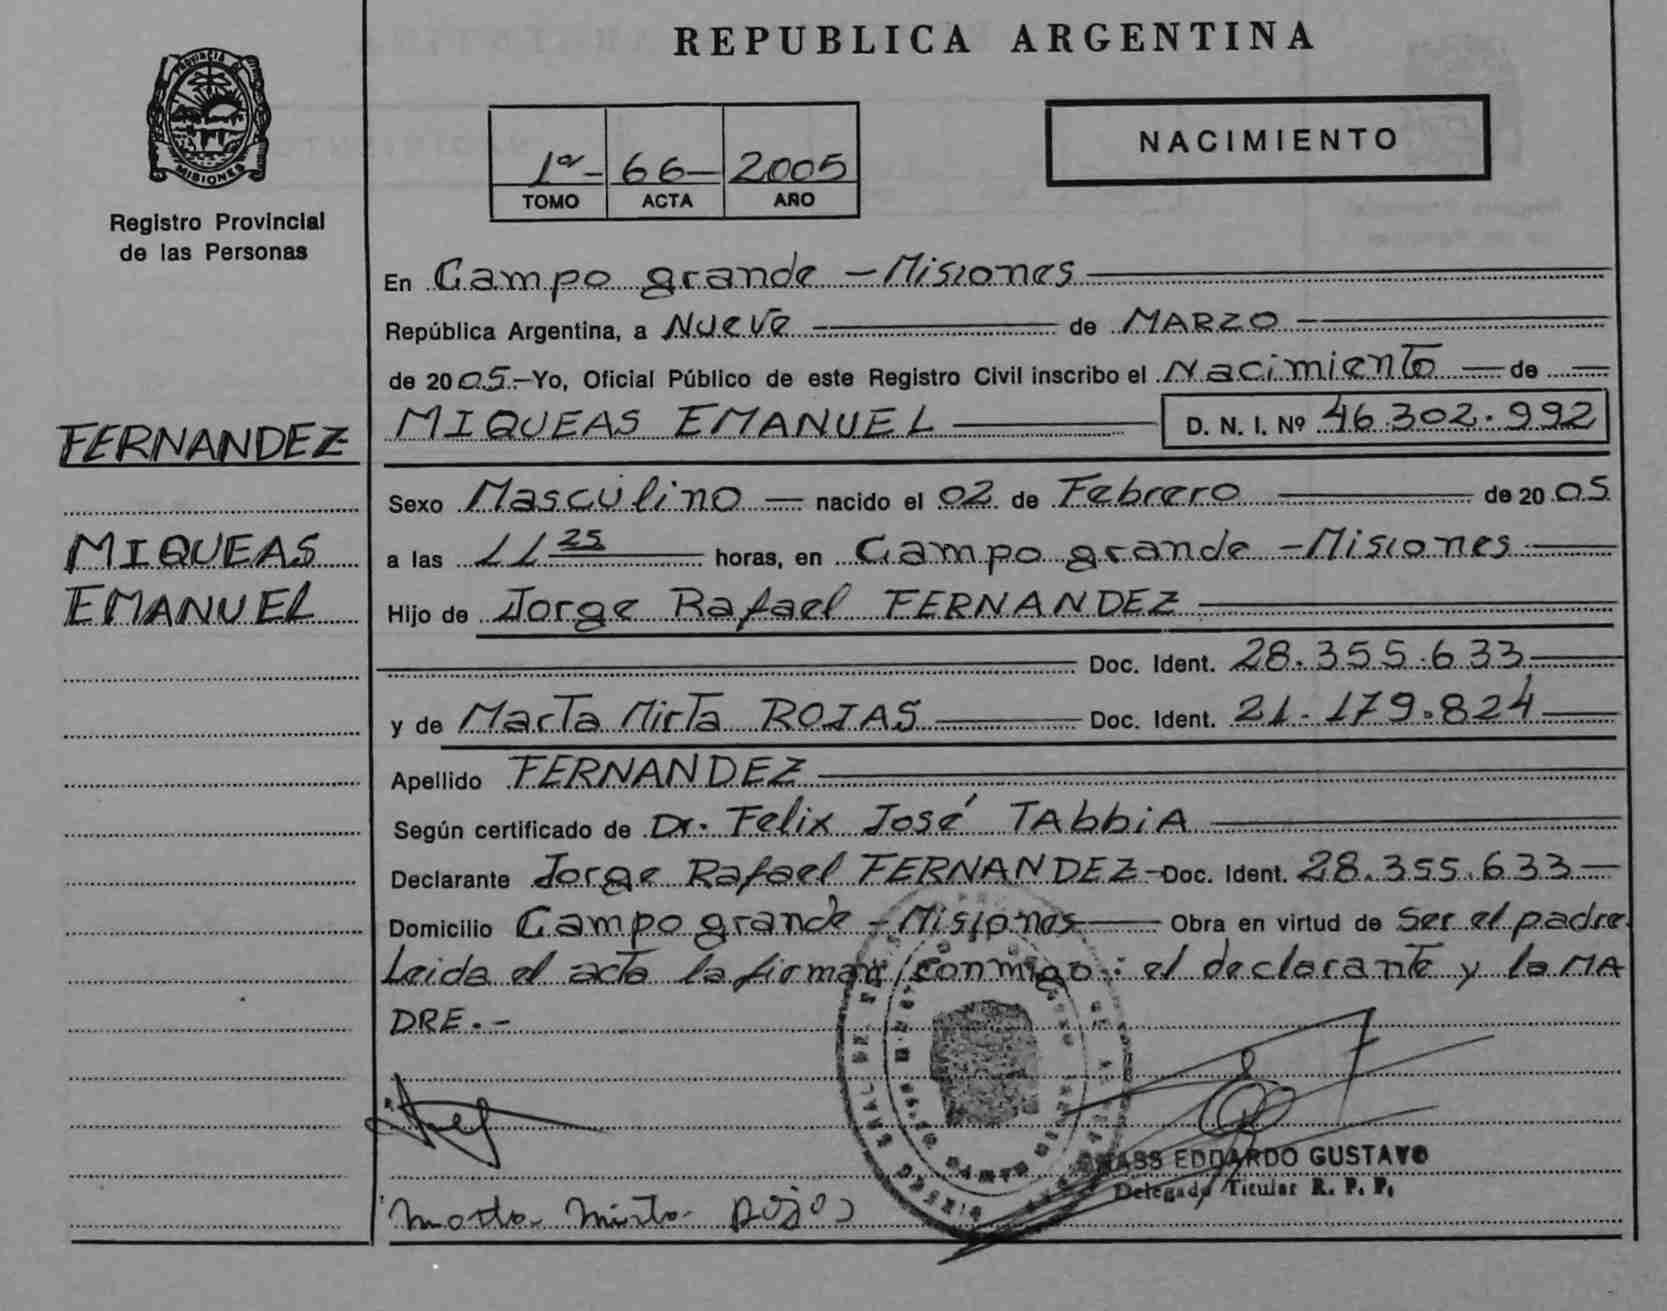 REPUBLICA ARGENTINA
PROVINCIA DE
MISIONES
Registro Provincial
de las Personas
1ª- 66- 2005
TOMO ACTA AÑO
NACIMIENTO
En Campo grande - Misiones
República Argentina, a Nueve de MARZO
de 2005.- Yo, Oficial Público de este Registro Civil inscribo el Nacimiento de
FERNANDEZ
MIQUEAS EMANUEL D. N. I. Nº 46.302.992
Sexo Masculino nacido el 02 de Febrero de 2005
MIQUEAS
a las 11 25 horas, en Campo grande - Misiones
EMANUEL
Hijo de Jorge Rafael FERNANDEZ
Doc. Ident. 28.355.633
y de Marta Mirta ROJAS Doc. Ident. 21.179.824
Apellido FERNANDEZ
Según certificado de Dr. Felix José TAbbiA
Declarante Jorge Rafael FERNANDEZ - Doc. Ident. 28.355.633
Domicilio Campo grande - Misiones Obra en virtud de Ser el padre
Leida el acta la firman conmigo: el declarante y la MA
DRE.-
EDUARDO GUSTAVO
Delegado Titular R. P. P.
Marta Mirta Rojas